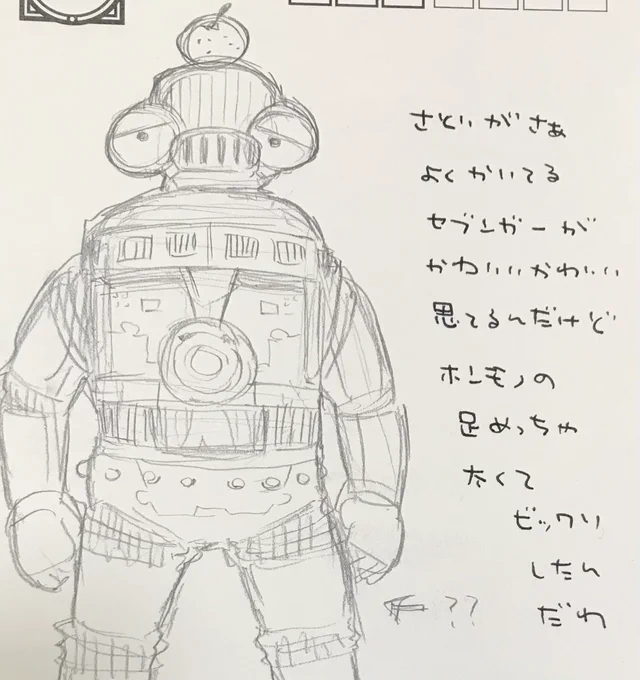 さといがさぁ
よくかいてる
セブンガーが
かわいいかわいい
思てるんだけど
ホンモノの
足めっちゃ
太くて
ビックリ
したん
だわ
??